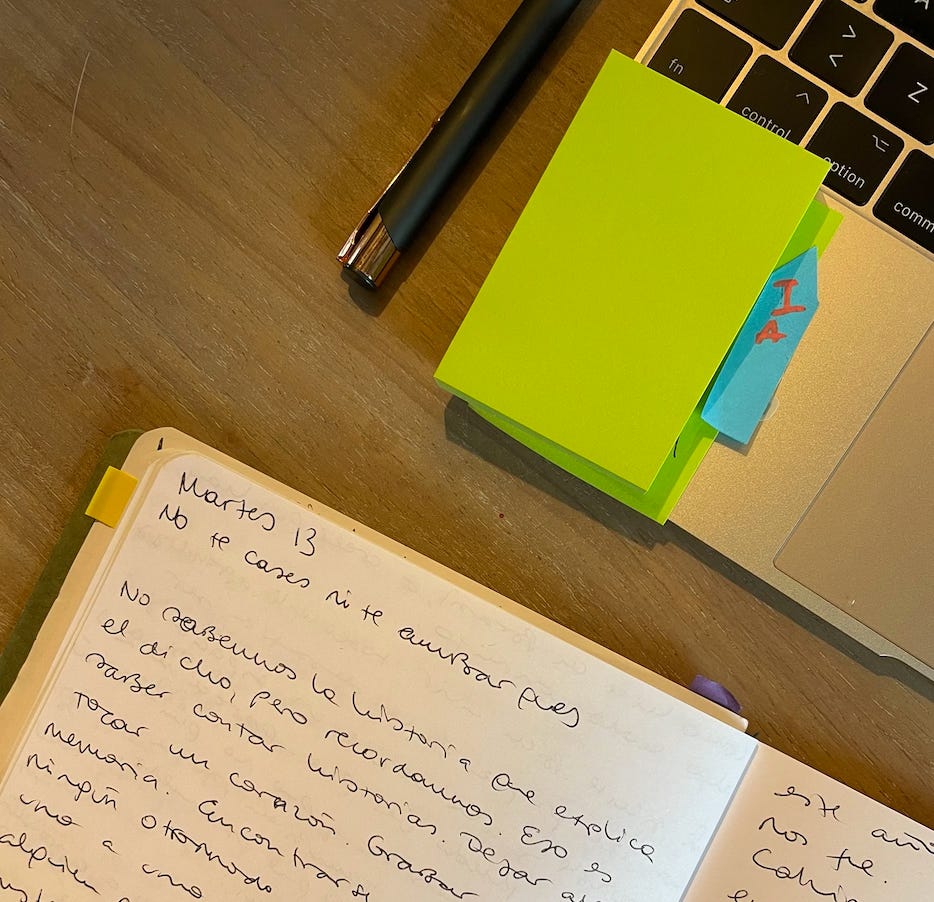 fn
control
option
comm
Z
I
A
Martes 13
No te cases ni te embarques
No sabemos la historia que explica
el dicho, pero recordamos. Eso es
saber contar historias. Dejar
tocar un corazón. Grabar
memoria. Encontrarse
ningún otro modo
uno a uno
alguien
este año
nos fue.